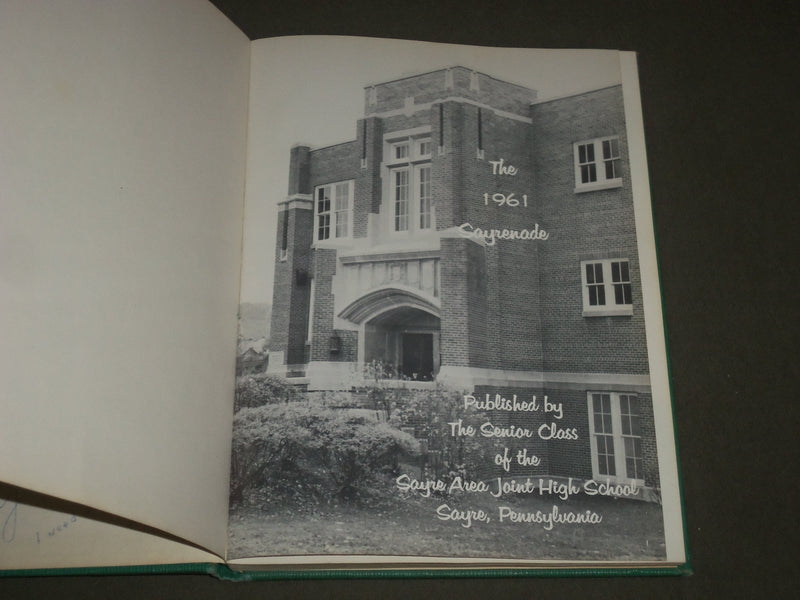 The
1961
Sayrenade
Published by
The Senior Class
of the
Sayre Area Joint High School
Sayre, Pennsylvania